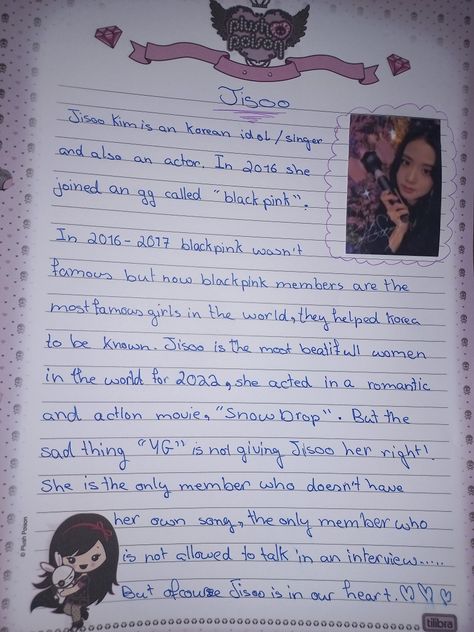 plush
poison
Jisoo
Jisoo Kim is an Korean idol/singer
and also an actor. In 2016 she
joined an gg called "black pink".
In 2016-2017 blackpink wasn't
famous but now blackpink members are the
most famous girls in the world, they helped Korea
to be known. Jisoo is the most beatifull women
in the world for 2022, she acted in a romantic
and action movie, "Snow Drop". But the
sad thing "YG" is not giving Jisoo her right!
She is the only member who doesn't have
her own song, the only member who
is not allowed to talk in an interview.....
But ofcourse Jisoo is in our heart. ♡ ♡ ♡
© Plush Poison
tilibra